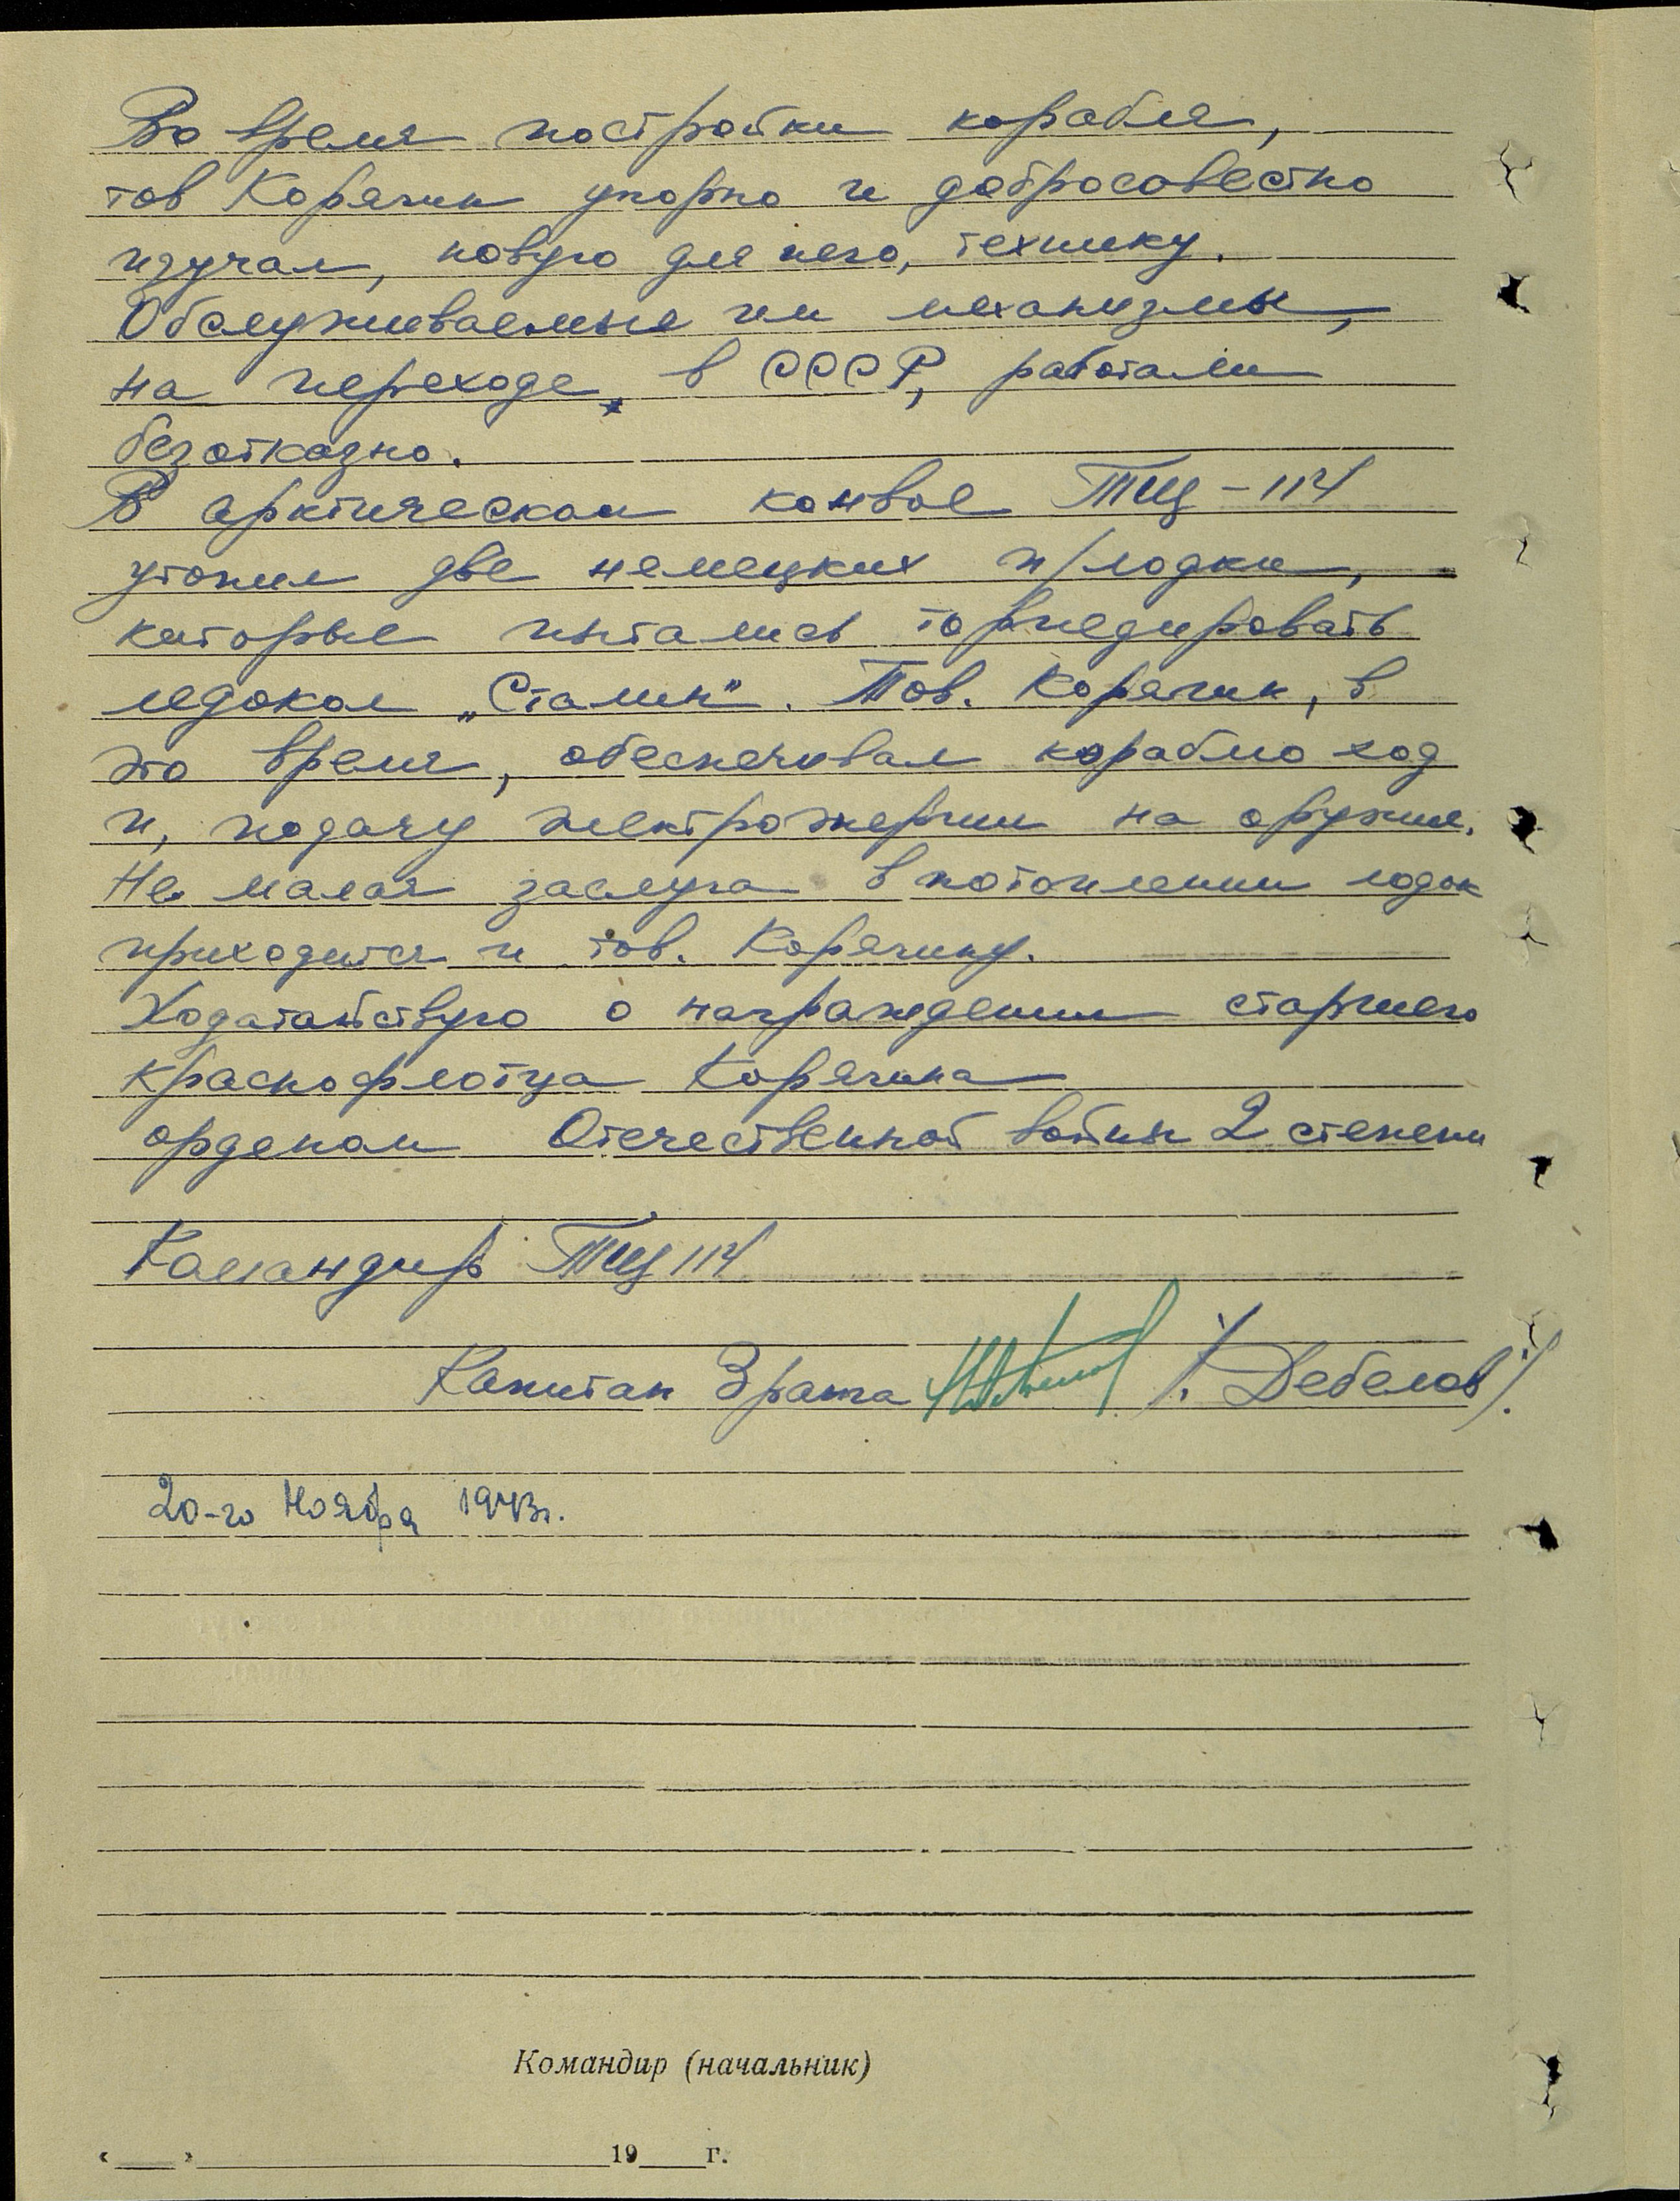 Во время постройки корабля,
тов Корячин упорно и добросовестно
изучал, новую для него, технику.
Обслуживаемые им механизмы,
на переходе, в СССР, работали
безотказно.
В арктическом конвое ТЩ-114
утопил две немецких п/лодки,
которые пытались торпедировать
ледокол „Сталин". Тов. Корячин, в
это время, обеспечивал кораблю ход
и, подачу электроэнергии на оружие.
Не малая заслуга в потоплении лодок
приходится и тов. Корячину.
Ходатайствую о награждении старшего
краснофлотца Корячина
орденом Отечественной войны 2 степени
Командир ТЩ 114
Капитан 3 ранга /. Дебелов /.
20-го Ноября 1943г.
Командир (начальник)
« » 19 г.